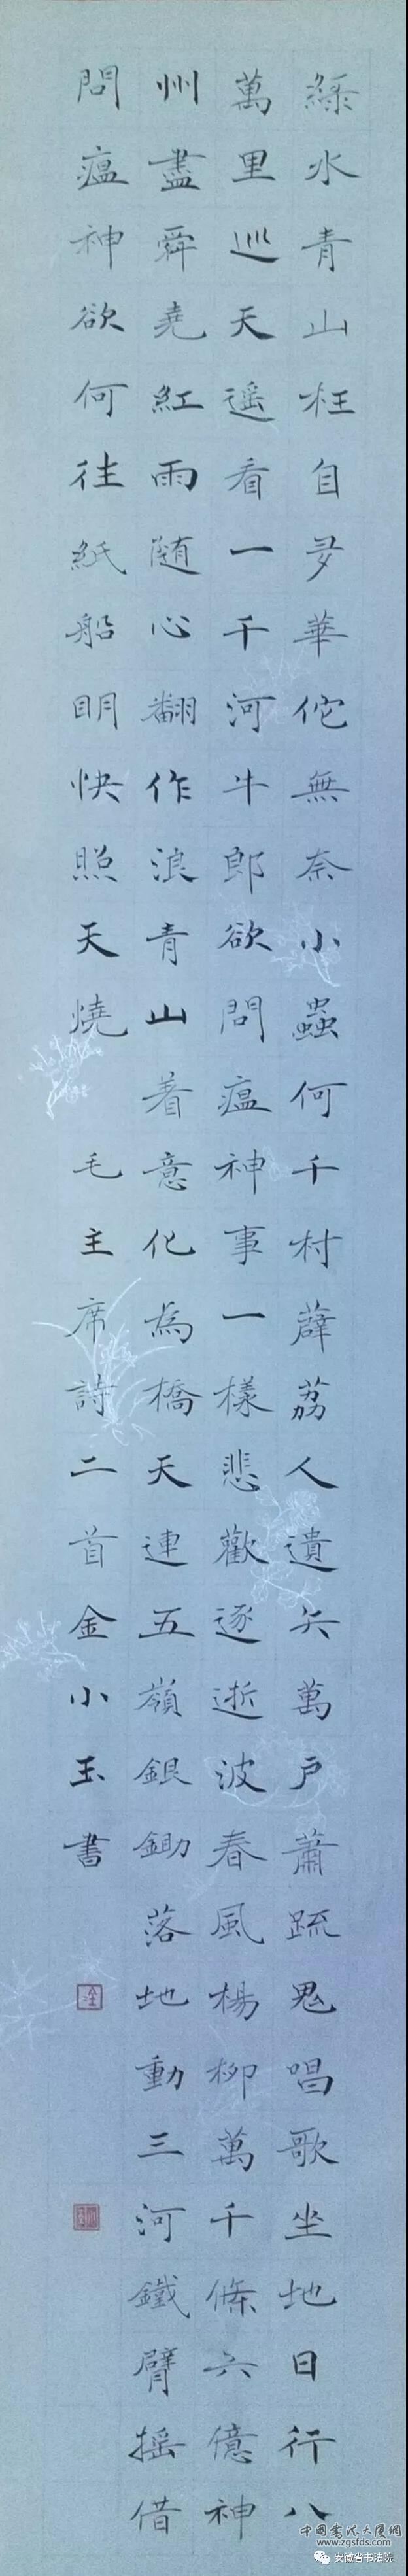 綠水青山枉自多華佗無奈小蟲何千村薜荔人遺矢萬户蕭疏鬼唱歌坐地日行八
萬里巡天遥看一千河牛郎欲問瘟神事一樣悲歡逐逝波春風楊柳萬千條六億神
州盡舜堯紅雨随心翻作浪青山着意化為橋天連五嶺銀鋤落地動三河鐵臂摇借
問瘟神欲何往紙船明快照天燒 毛主席詩二首金小玉書
中國書法大厦網
www.zgsfds.com
安徽省书法院